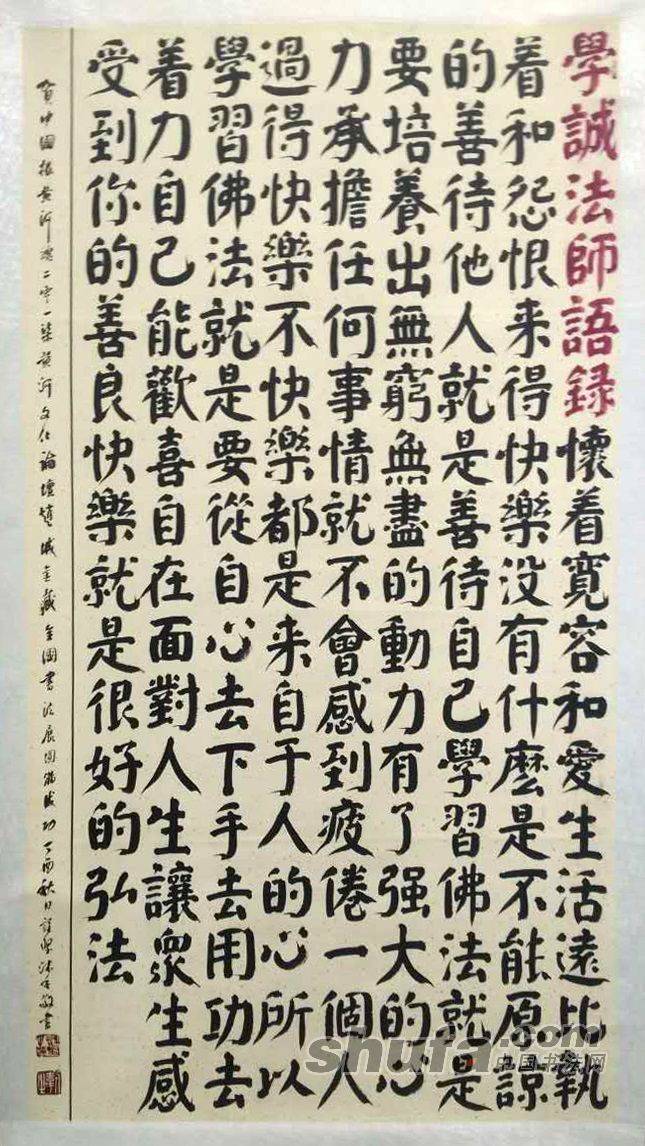 學誠法師語録懷着寬容和愛生活遠比執
着和怨恨来得快樂没有什麽是不能原諒
的善待他人就是善待自己學習佛法就是
要培養出無窮無盡的動力有了强大的心
力承擔任何事情就不會感到疲倦一個人
過得快樂不快樂都是来自于人的心所以
學習佛法就是要從自心去下手去用功去
着力自己能歡喜自在面對人生讓衆生感
受到你的善良快樂就是很好的弘法
賀中國根黄河魂二零一柒黄河文化論壇暨城金藏全國書法展圓滿成功丁酉秋月沐手敬書
shufa.com
中国书法网